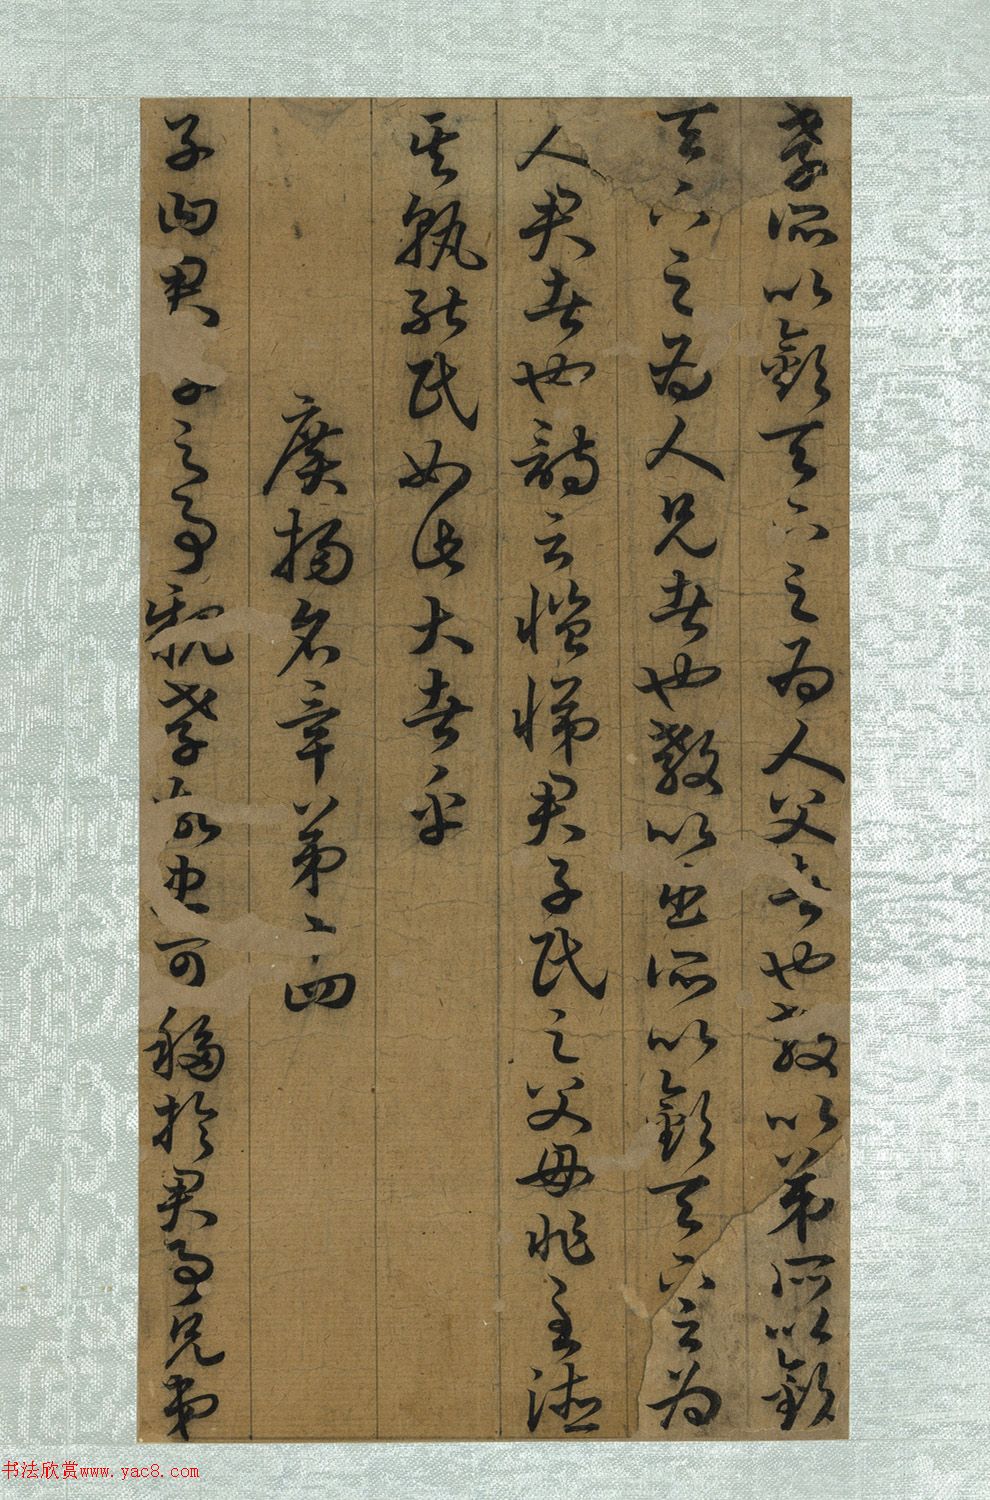 孝所以欽天下之為人父者也教以弟所以欽
天下之為人兄者也教以臣所以欽天下之為
人君者也詩云愷悌君子民之父母非至德
其孰能民如此大者乎
廣揚名章第十四
子曰君子之事親孝故忠可移於君事兄弟
书法欣赏www.yac8.com